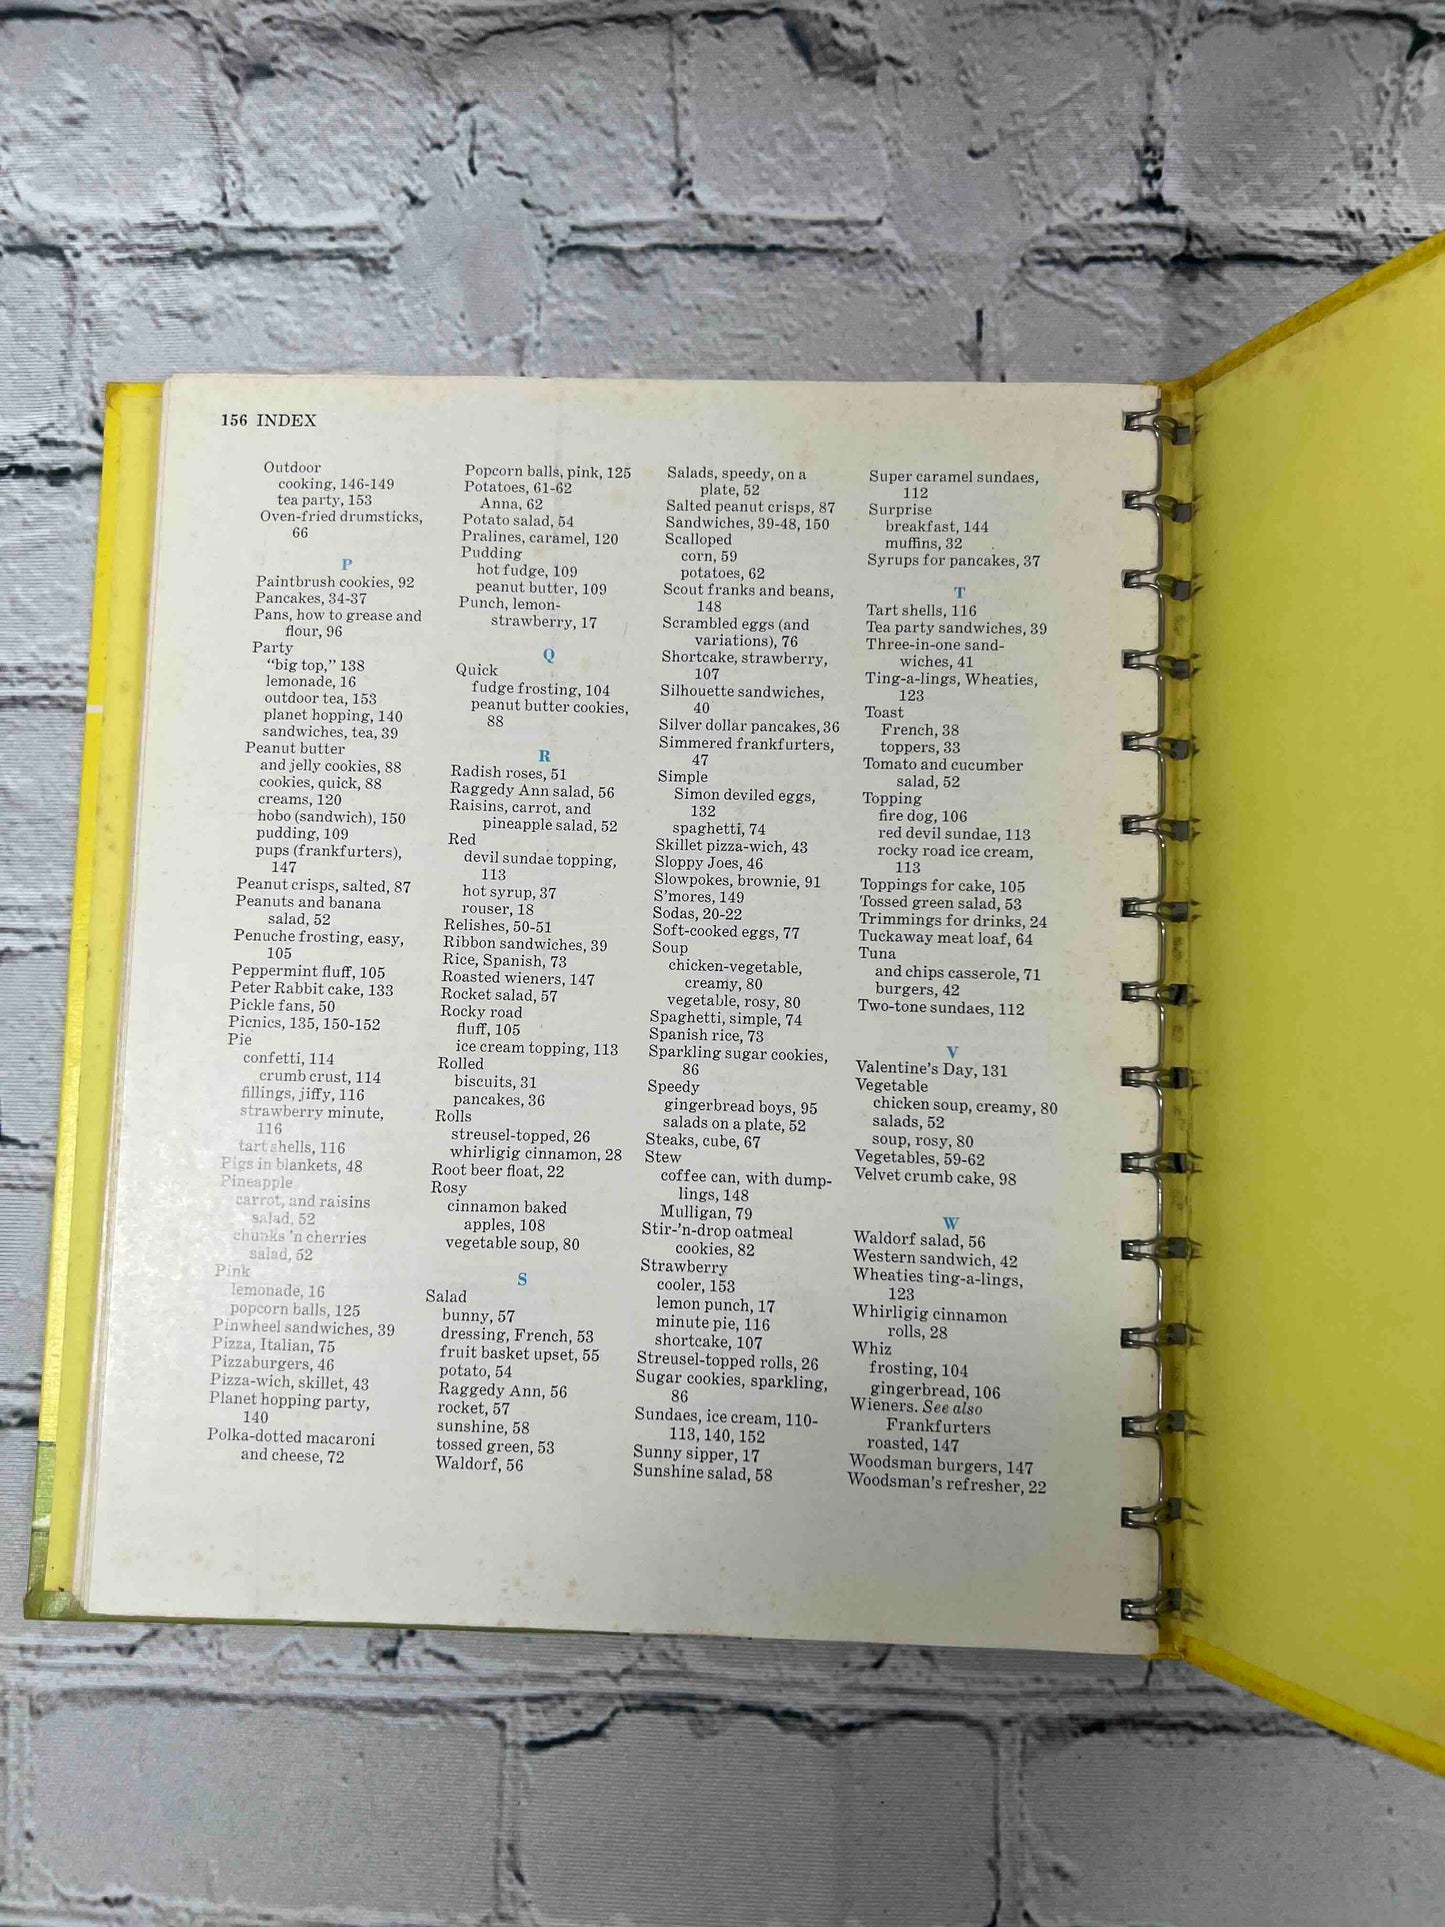 156 INDEX
Outdoor
cooking, 146-149
tea party, 153
Oven-fried drumsticks,
66
P
Paintbrush cookies, 92
Pancakes, 34-37
Pans, how to grease and
flour, 96
Party
“big top,” 138
lemonade, 16
outdoor tea, 153
planet hopping, 140
sandwiches, tea, 39
Peanut butter
and jelly cookies, 88
cookies, quick, 88
creams, 120
hobo (sandwich), 150
pudding, 109
pups (frankfurters),
147
Peanut crisps, salted, 87
Peanuts and banana
salad, 52
Penuche frosting, easy,
105
Peppermint fluff, 105
Peter Rabbit cake, 133
Pickle fans, 50
Picnics, 135, 150-152
Pie
confetti, 114
crumb crust, 114
fillings, jiffy, 116
strawberry minute,
116
tart shells, 116
Pigs in blankets, 48
Pineapple
carrot, and raisins
salad, 52
chunks ’n cherries
salad, 52
Pink
lemonade, 16
popcorn balls, 125
Pinwheel sandwiches, 39
Pizza, Italian, 75
Pizzaburgers, 46
Pizza-wich, skillet, 43
Planet hopping party,
140
Polka-dotted macaroni
and cheese, 72
Popcorn balls, pink, 125
Potatoes, 61-62
Anna, 62
Potato salad, 54
Pralines, caramel, 120
Pudding
hot fudge, 109
peanut butter, 109
Punch, lemon-
strawberry, 17
Q
Quick
fudge frosting, 104
peanut butter cookies,
88
R
Radish roses, 51
Raggedy Ann salad, 56
Raisins, carrot, and
pineapple salad, 52
Red
devil sundae topping,
113
hot syrup, 37
rouser, 18
Relishes, 50-51
Ribbon sandwiches, 39
Rice, Spanish, 73
Roasted wieners, 147
Rocket salad, 57
Rocky road
fluff, 105
ice cream topping, 113
Rolled
biscuits, 31
pancakes, 36
Rolls
streusel-topped, 26
whirligig cinnamon, 28
Root beer float, 22
Rosy
cinnamon baked
apples, 108
vegetable soup, 80
S
Salad
bunny, 57
dressing, French, 53
fruit basket upset, 55
potato, 54
Raggedy Ann, 56
rocket, 57
sunshine, 58
tossed green, 53
Waldorf, 56
Salads, speedy, on a
plate, 52
Salted peanut crisps, 87
Sandwiches, 39-48, 150
Scalloped
corn, 59
potatoes, 62
Scout franks and beans,
148
Scrambled eggs (and
variations), 76
Shortcake, strawberry,
107
Silhouette sandwiches,
40
Silver dollar pancakes, 36
Simmered frankfurters,
47
Simple
Simon deviled eggs,
132
spaghetti, 74
Skillet pizza-wich, 43
Sloppy Joes, 46
Slowpokes, brownie, 91
S’mores, 149
Sodas, 20-22
Soft-cooked eggs, 77
Soup
chicken-vegetable,
creamy, 80
vegetable, rosy, 80
Spaghetti, simple, 74
Spanish rice, 73
Sparkling sugar cookies,
86
Speedy
gingerbread boys, 95
salads on a plate, 52
Steaks, cube, 67
Stew
coffee can, with dump-
lings, 148
Mulligan, 79
Stir-’n-drop oatmeal
cookies, 82
Strawberry
cooler, 153
lemon punch, 17
minute pie, 116
shortcake, 107
Streusel-topped rolls, 26
Sugar cookies, sparkling,
86
Sundaes, ice cream, 110-
113, 140, 152
Sunny sipper, 17
Sunshine salad, 58
Super caramel sundaes,
112
Surprise
breakfast, 144
muffins, 32
Syrups for pancakes, 37
T
Tart shells, 116
Tea party sandwiches, 39
Three-in-one sand-
wiches, 41
Ting-a-lings, Wheaties,
123
Toast
French, 38
toppers, 33
Tomato and cucumber
salad, 52
Topping
fire dog, 106
red devil sundae, 113
rocky road ice cream,
113
Toppings for cake, 105
Tossed green salad, 53
Trimmings for drinks, 24
Tuckaway meat loaf, 64
Tuna
and chips casserole, 71
burgers, 42
Two-tone sundaes, 112
V
Valentine’s Day, 131
Vegetable
chicken soup, creamy, 80
salads, 52
soup, rosy, 80
Vegetables, 59-62
Velvet crumb cake, 98
W
Waldorf salad, 56
Western sandwich, 42
Wheaties ting-a-lings,
123
Whirligig cinnamon
rolls, 28
Whiz
frosting, 104
gingerbread, 106
Wieners. See also
Frankfurters
roasted, 147
Woodsman burgers, 147
Woodsman’s refresher, 22